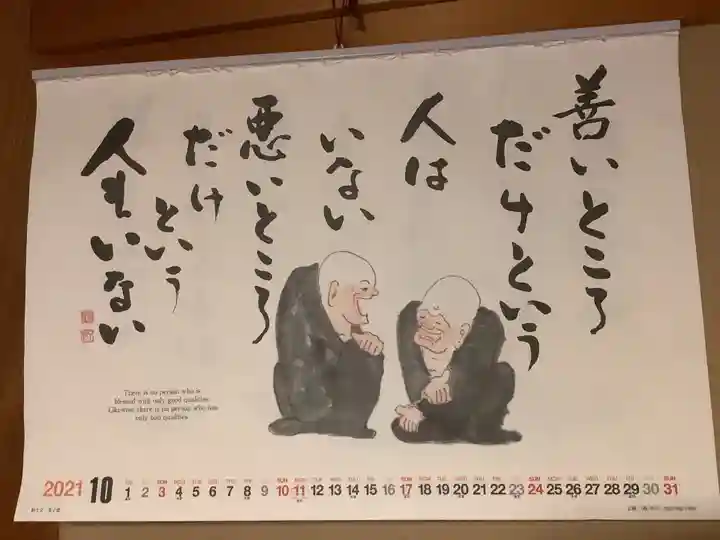 善いところ
だけという
人は
いない
悪いところ
だけ
という
人もいない
There is no person who is
blessed with only good qualities.
Likewise there is no person who has
only bad qualities.
2021 10
FRI SAT SUN MON TUE WED THU FRI SAT SUN MON TUE WED THU FRI SAT SUN MON TUE WED THU FRI SAT SUN MON TUE WED THU FRI SAT SUN
1 2 3 4 5 6 7 8 9 10 11 12 13 14 15 16 17 18 19 20 21 22 23 24 25 26 27 28 29 30 31